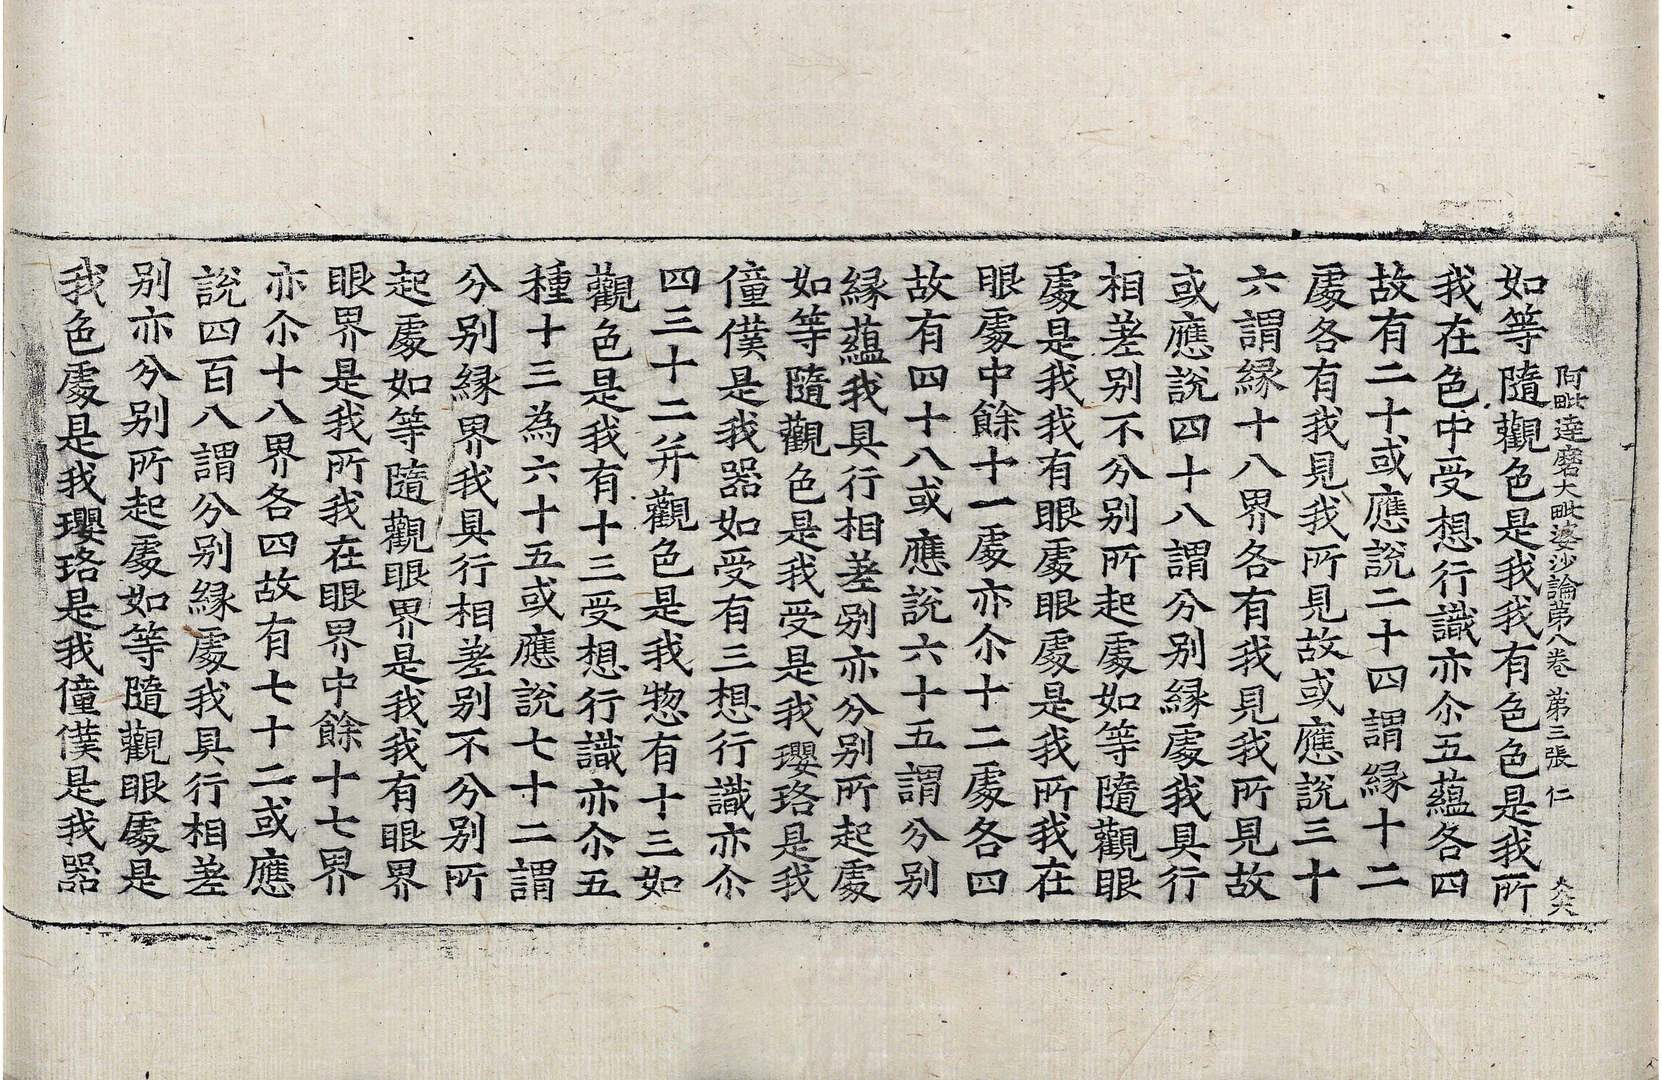 阿毗達磨大毗婆沙論第八卷 第三張 仁
如等隨觀色是我我有色色是我所
我在色中受想行識亦尒五蘊各四
故有二十或應說二十四謂縁十二
處各有我見我所見故或應說三十
六謂縁十八界各有我見我所見故
或應說四十八謂分別縁處我具行
相差別不分別所起處如等隨觀眼
處是我我有眼處眼處是我所我在
眼處中餘十一處亦尒十二處各四
故有四十八或應說六十五謂分別
縁蘊我具行相差別亦分別所起處
如等隨觀色是我受是我瓔珞是我
僮僕是我器如受有三想行識亦尒
四三十二并觀色是我惣有十三如
觀色是我有十三受想行識亦尒五
種十三為六十五或應說七十二謂
分別縁界我具行相差別不分別所
起處如等隨觀眼界是我我有眼界
眼界是我所我在眼界中餘十七界
亦尒十八界各四故有七十二或應
說四百八謂分別縁處我具行相差
別亦分別所起處如等隨觀眼處是
我色處是我瓔珞是我僮僕是我器